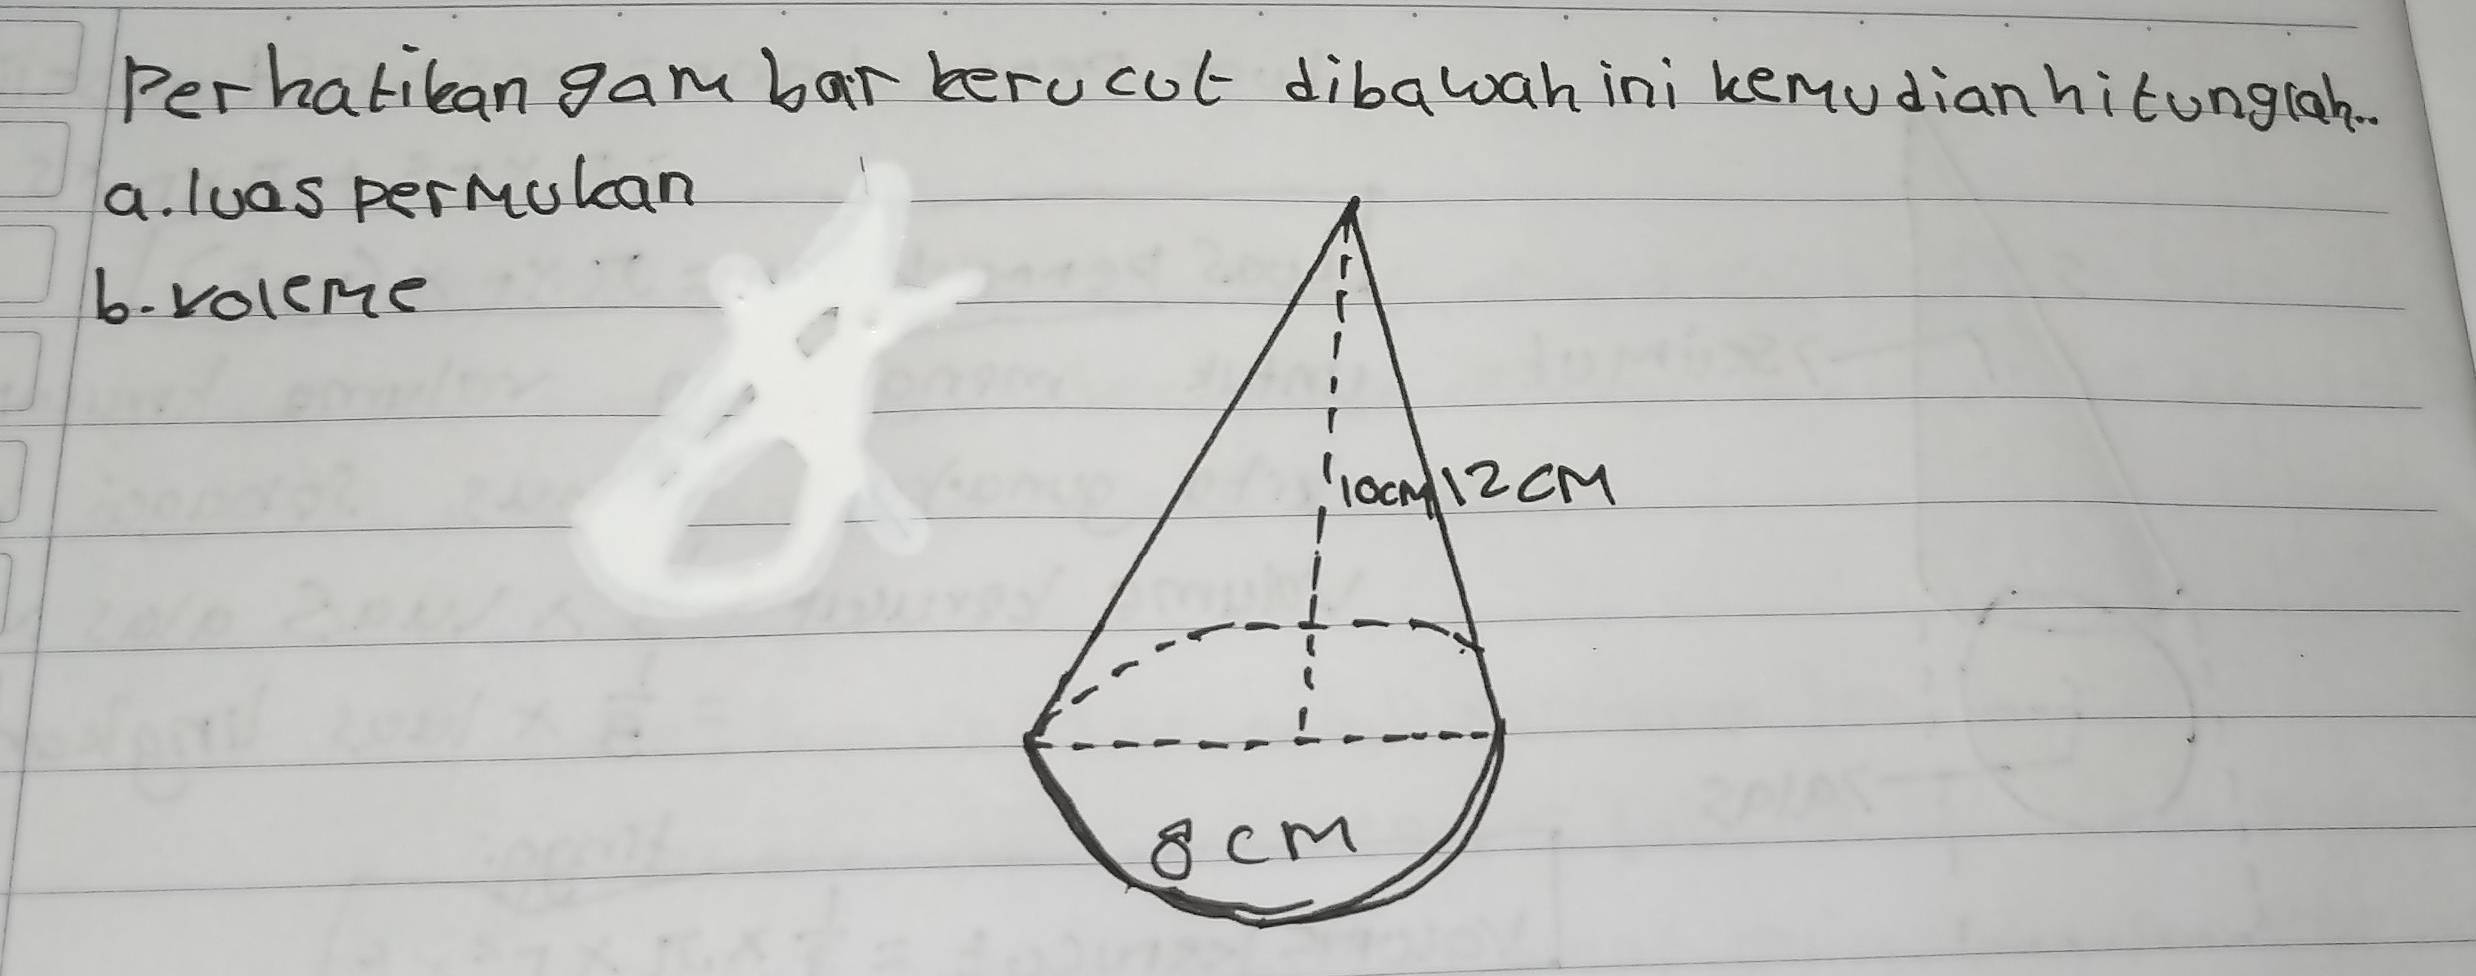 Perhatikan gambar kerucut dibawah ini kemudian hitunglah..
a. luas permukan
b. voleme
10cm 12 CM
8 CM